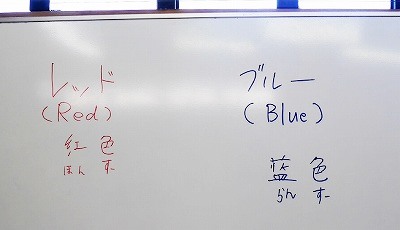 レッド
(Red)
紅色
ほんすー
ブルー
(Blue)
蓝色
らんすー